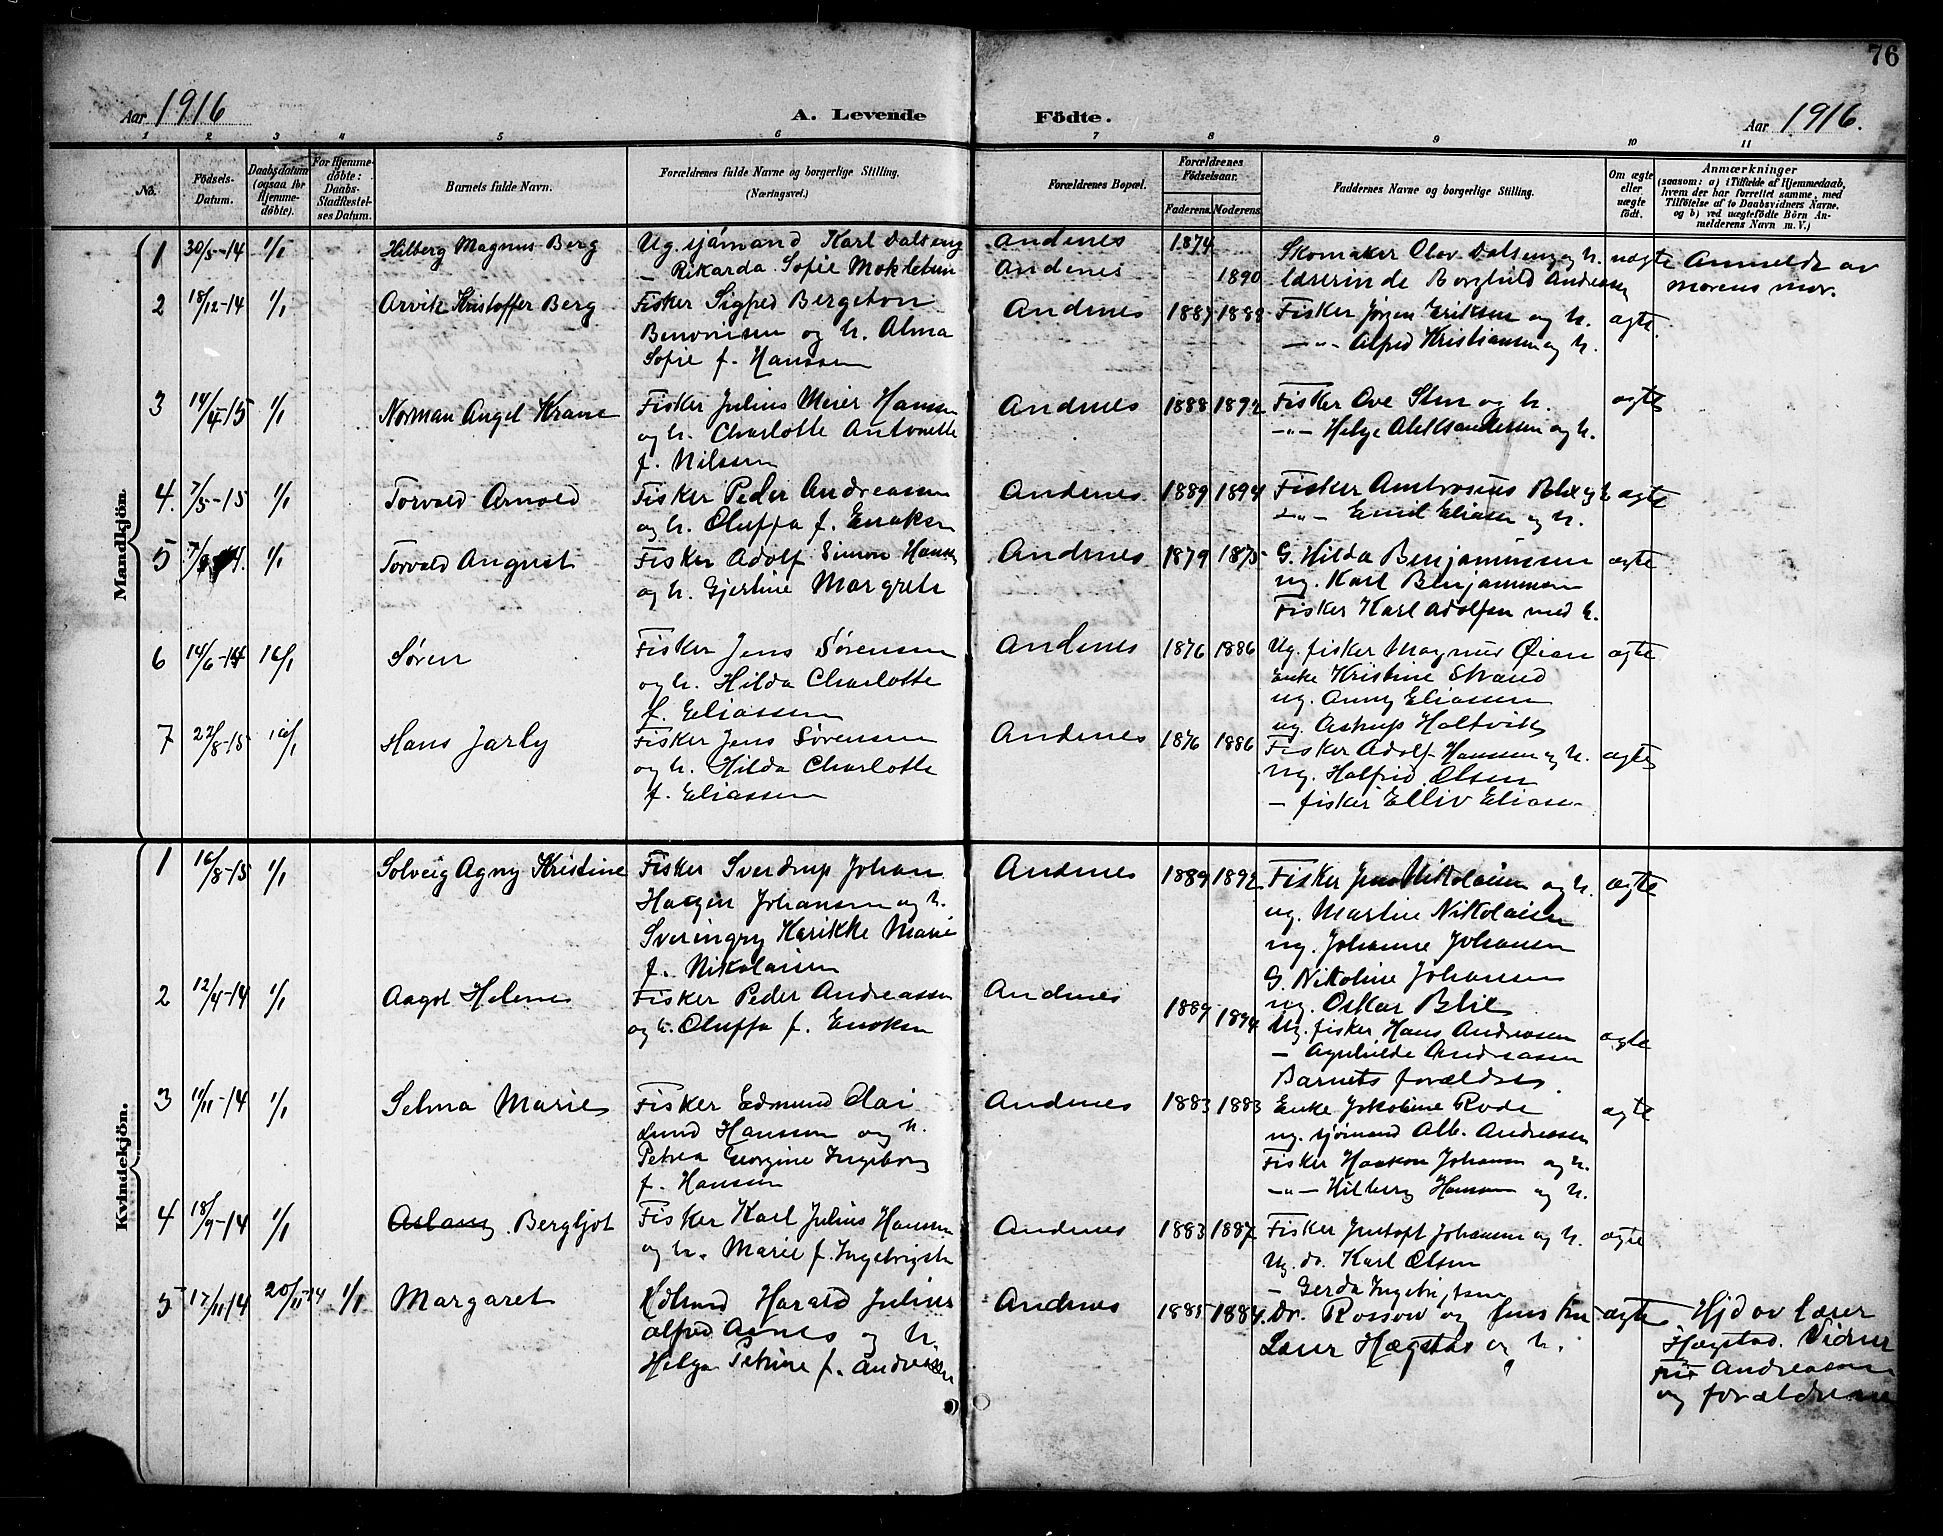 76
Aar 1916
A. Levende Födte.
Aar 1916.
1 2 3 4 5 6 7 8 9 10 11
No.
Födsels-
Datum.
Daabsdatum
(ogsaa for
Hjemme-
döbte).
For Hjemme-
döbte:
Daabs-
Stadfæstel-
ses Datum.
Barnets fulde Navn.
Forældrenes fulde Navne og borgerlige Stilling.
(Næringsvei.)
Forældrenes Bopæl.
Forældrenes
Födselsaar.
Faderens. Moderens.
Faddernes Navne og borgerlige Stilling.
Om ægte
eller
uægte
født.
Anmærkninger
(saasom: a) i Tilfælde af Hjemmedaab,
hvem der har forrettet samme, med
Tilföielse af to Daabsvidners Navne.
og b) ved uægtefödte Börn An-
melderens Navn m.V.)
Mandkjön.
1 30/5-14 1/1 Hilberg Magnus Berg
Ug. sjömand Karl Dalseng
— Rikarda Sofie Mokleb
Andenes
Andenes
1874
1890
Skomaker Olav Dalseng og h.
lærerinde Borghild Andreassen
uægte
Anmeldt av
morens mor.
2 18/12-14 1/1 Arvik Kristoffer Berg
Fisker Sigfred Bergeton
og h. Alma
Sofie f. Hanssen
Andenes 1887 1888
Fisker Jörgen Eriksen og h.
—"— Alfred Kristiansen og h.
ægte
3 14/4-15 1/1 Norman Angel Krane
Fisker Julius Meier Hansen
og h. Charlotte Antonette
f. Nilssen
Andenes 1888 1892
Fisker Ove Sten og h.
—"— Helge Aleksandersen og h.
ægte
4. 7/5-15 1/1 Torvald Arnold
Fisker Peder Andreassen
og h. Oluffa f. Enoksen
Andenes 1889 1894
Fisker Ambrosius Blix og h
—"— Emil Eliasen og h.
ægte
5 1/1 Torvald August
Fisker Adolf Simon Hansen
og h. Gjertine Margrete
Andenes 1879 1875
G. Hilda Benjaminsen
ug. Karl Benjaminsen
Fisker Karl Adolfsen med h.
ægte
6 14/6-14 16/1 Sören
Fisker Jens Sørensen
og h. Hilda Charlotte
f. Eliassen
Andenes 1876 1886
Ug. fisker Magnus Øian
Enke Kristine Strand
ug. Anny Eliassen
ug. Astrup Holtvik
ægte
7 22/8-15 16/1 Hans Jarly
Fisker Jens Sørensen
og h. Hilda Charlotte
f. Eliassen
Andenes 1876 1886
Fisker Adolf Hanssen og h.
ug. Halfrid Olsen
— fisker Elliv Eliasen
ægte
Kvindekjön.
1 16/8-15 1/1 Solveig Agny Kristine
Fisker Sverdrup Johan
Haagen Johansen og h.
Henrikke Marie
f. Nikolaisen
Andenes 1889 1892
Fisker Jens Nikolaisen og h.
ug. Martin Nikolaisen
ug. Johanne Johansen
G. Nikoline Johansen
ægte
2 12/4-14 1/1 Aagot Helene
Fisker Peder Andreassen
og h. Oluffa f. Enoksen
Andenes 1889 1894
ug. Oskar Blix
Ug. fisker Hans Andreasen
— Agnhilde Andreassen
Barnets forældre.
ægte
3 11/11-14 1/1 Selma Marie
Fisker Edmund Olai
Lund Hanssen og h.
Petrea Georgine Ingeborg
f. Hansen
Andenes 1883 1883
Enke Jakobine Rode
ug. sjömand Alb. Andreassen
Fisker Haakon Johansen og h.
—"— Hilberg Hansen og h.
ægte
4 18/9-14 1/1 Aslaug. Bergljot
Fisker Karl Julius Hansen
og h. Marie f. Ingebrigts
Andenes 1883 1887
Fisker Johansen og h.
Ug. do. Karl Olsen
— Gerda Ingebrigtsen
ægte
5 17/11-14 20/11-14 1/1 Margaret
Harald Julius
Alfred og h.
Helga Petrine f. Andreassen
Andenes 1885 1884
Dr. Rossow og
Lærer Hægstad og h.
ægte
Hjd av lærer
Hægstad. Vidner
Andreassen
og forældrene